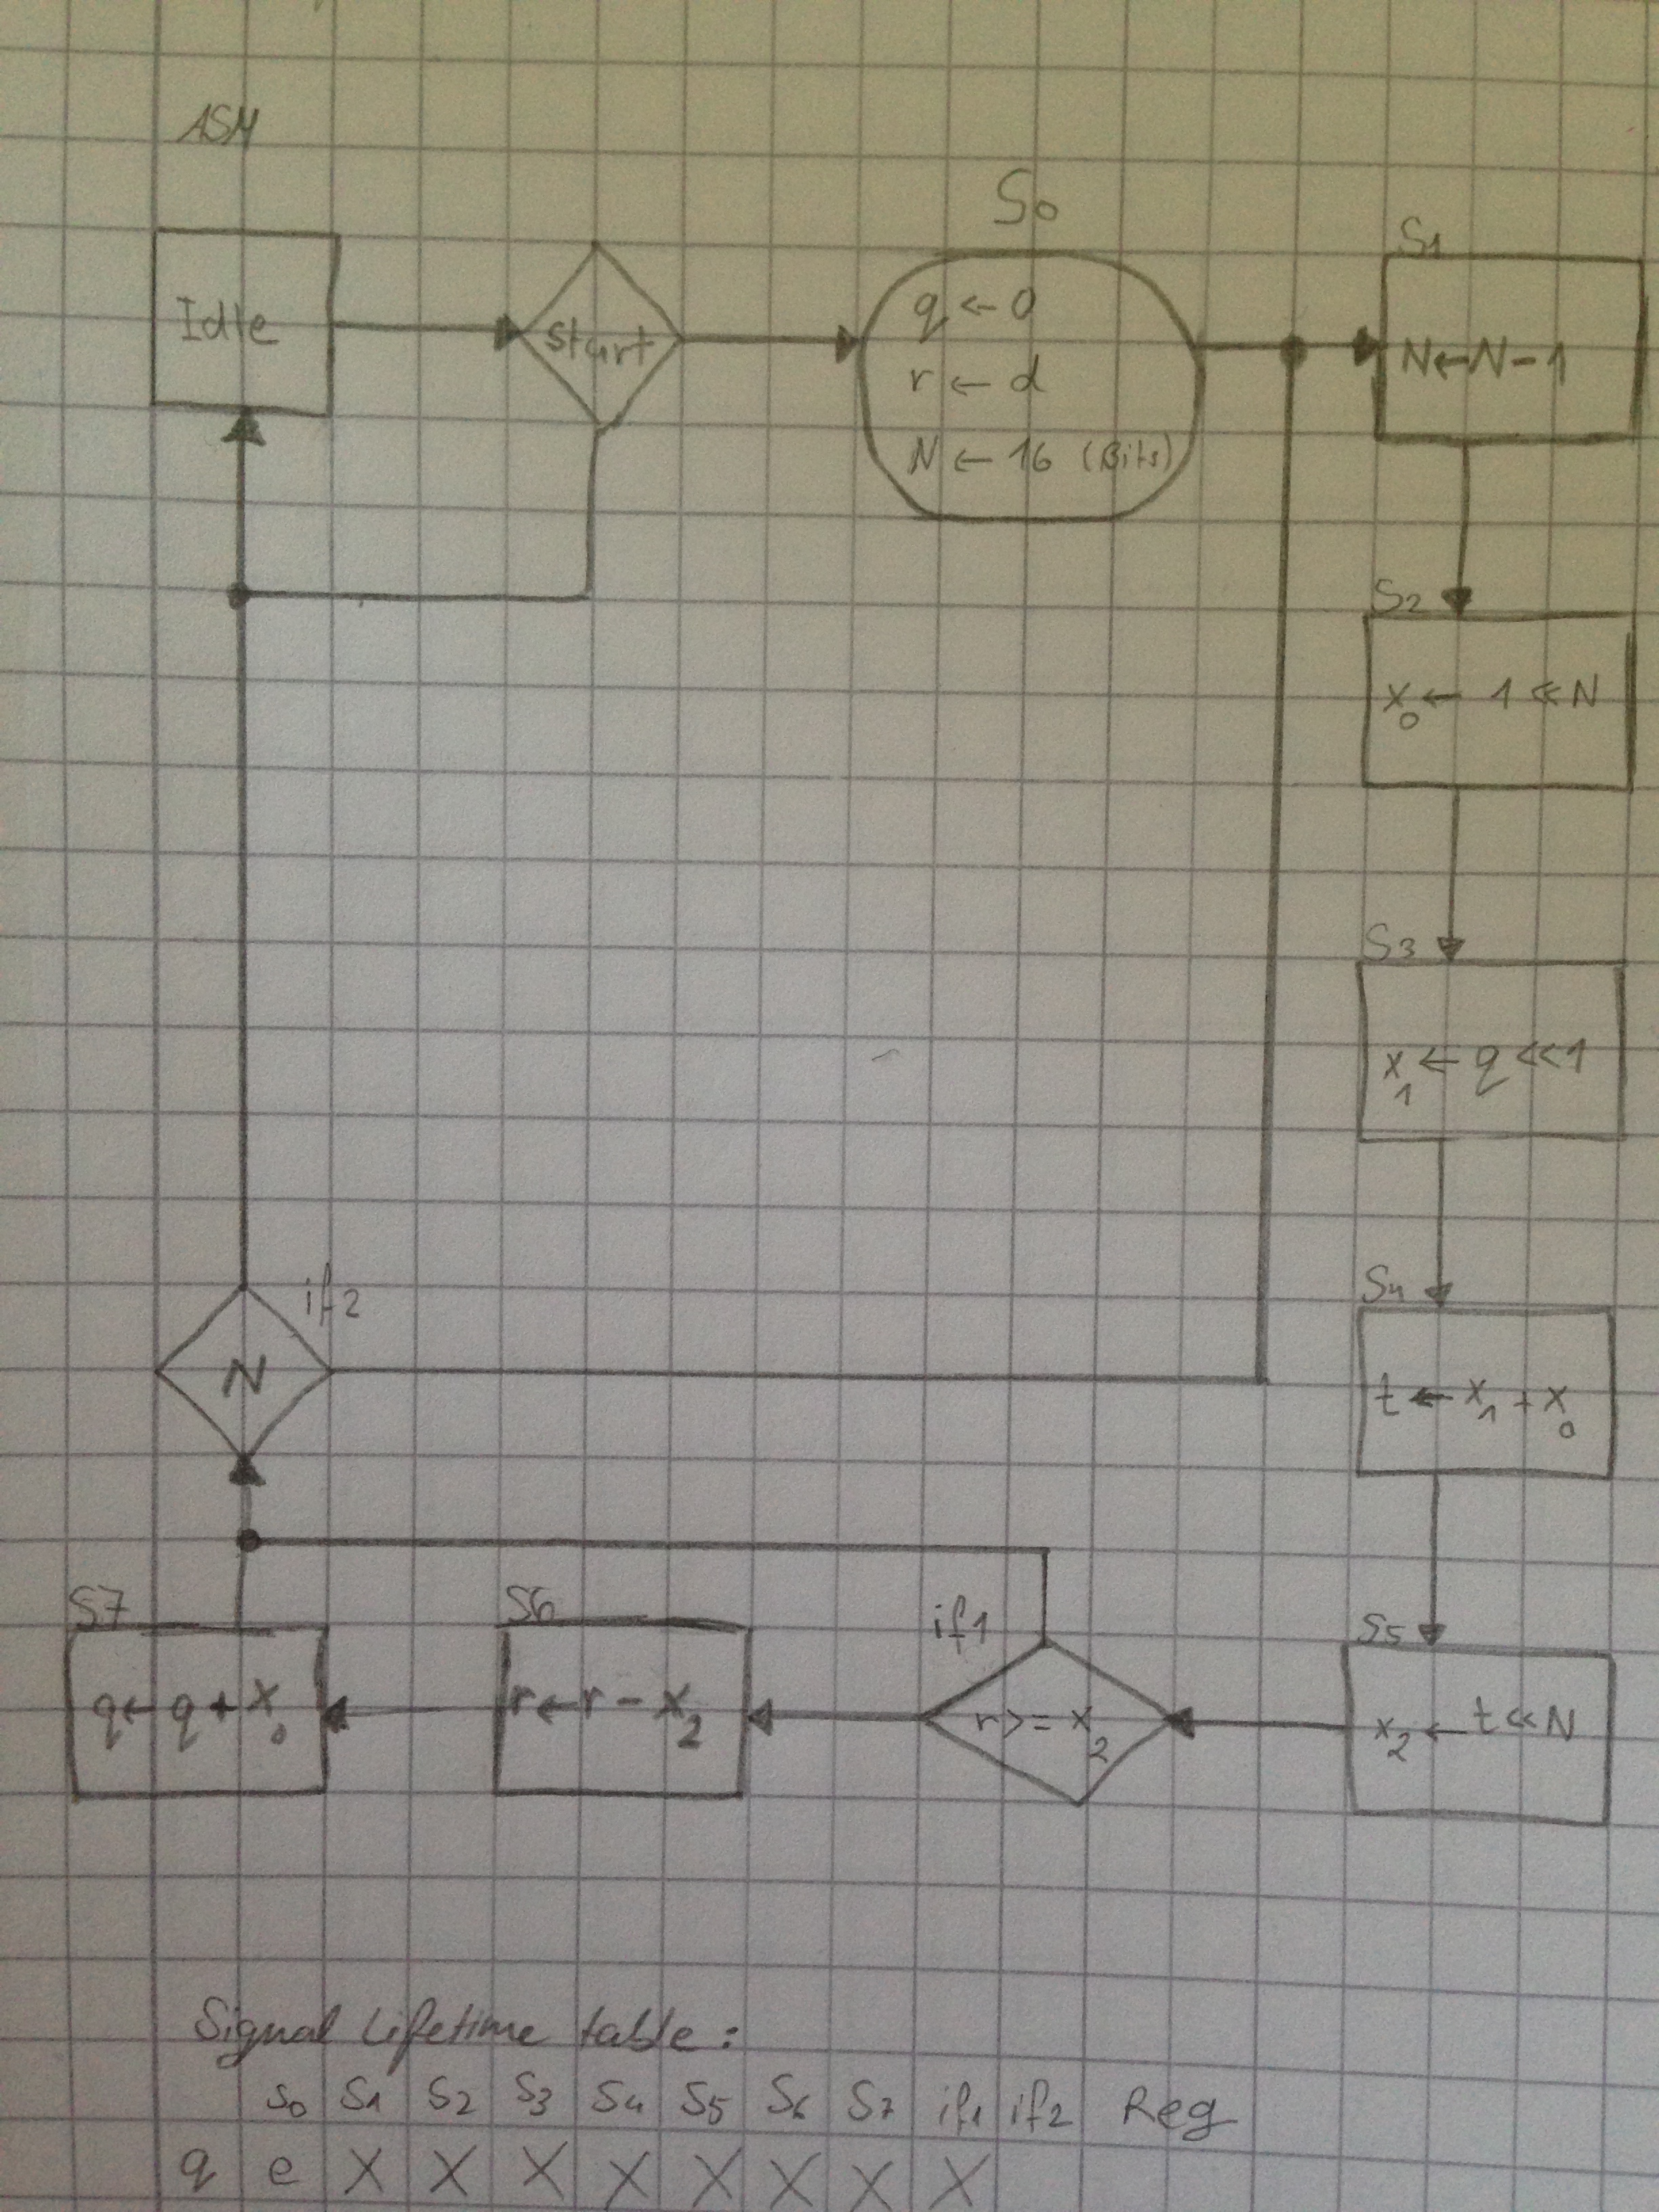 ASM
Idle
start
S0
q ← 0
r ← d
N ← 16 (Bits)
S1
N ← N - 1
S2
x0 ← 1 << N
S3
x1 ← q << 1
S4
t ← x1 + x0
S5
x2 ← t << N
if1
r >= x2
S6
r ← r - x2
S7
q ← q + x0
if2
N
Signal Lifetime table:
S0 S1 S2 S3 S4 S5 S6 S7 if1 if2 Reg
q e X X X X X X X X